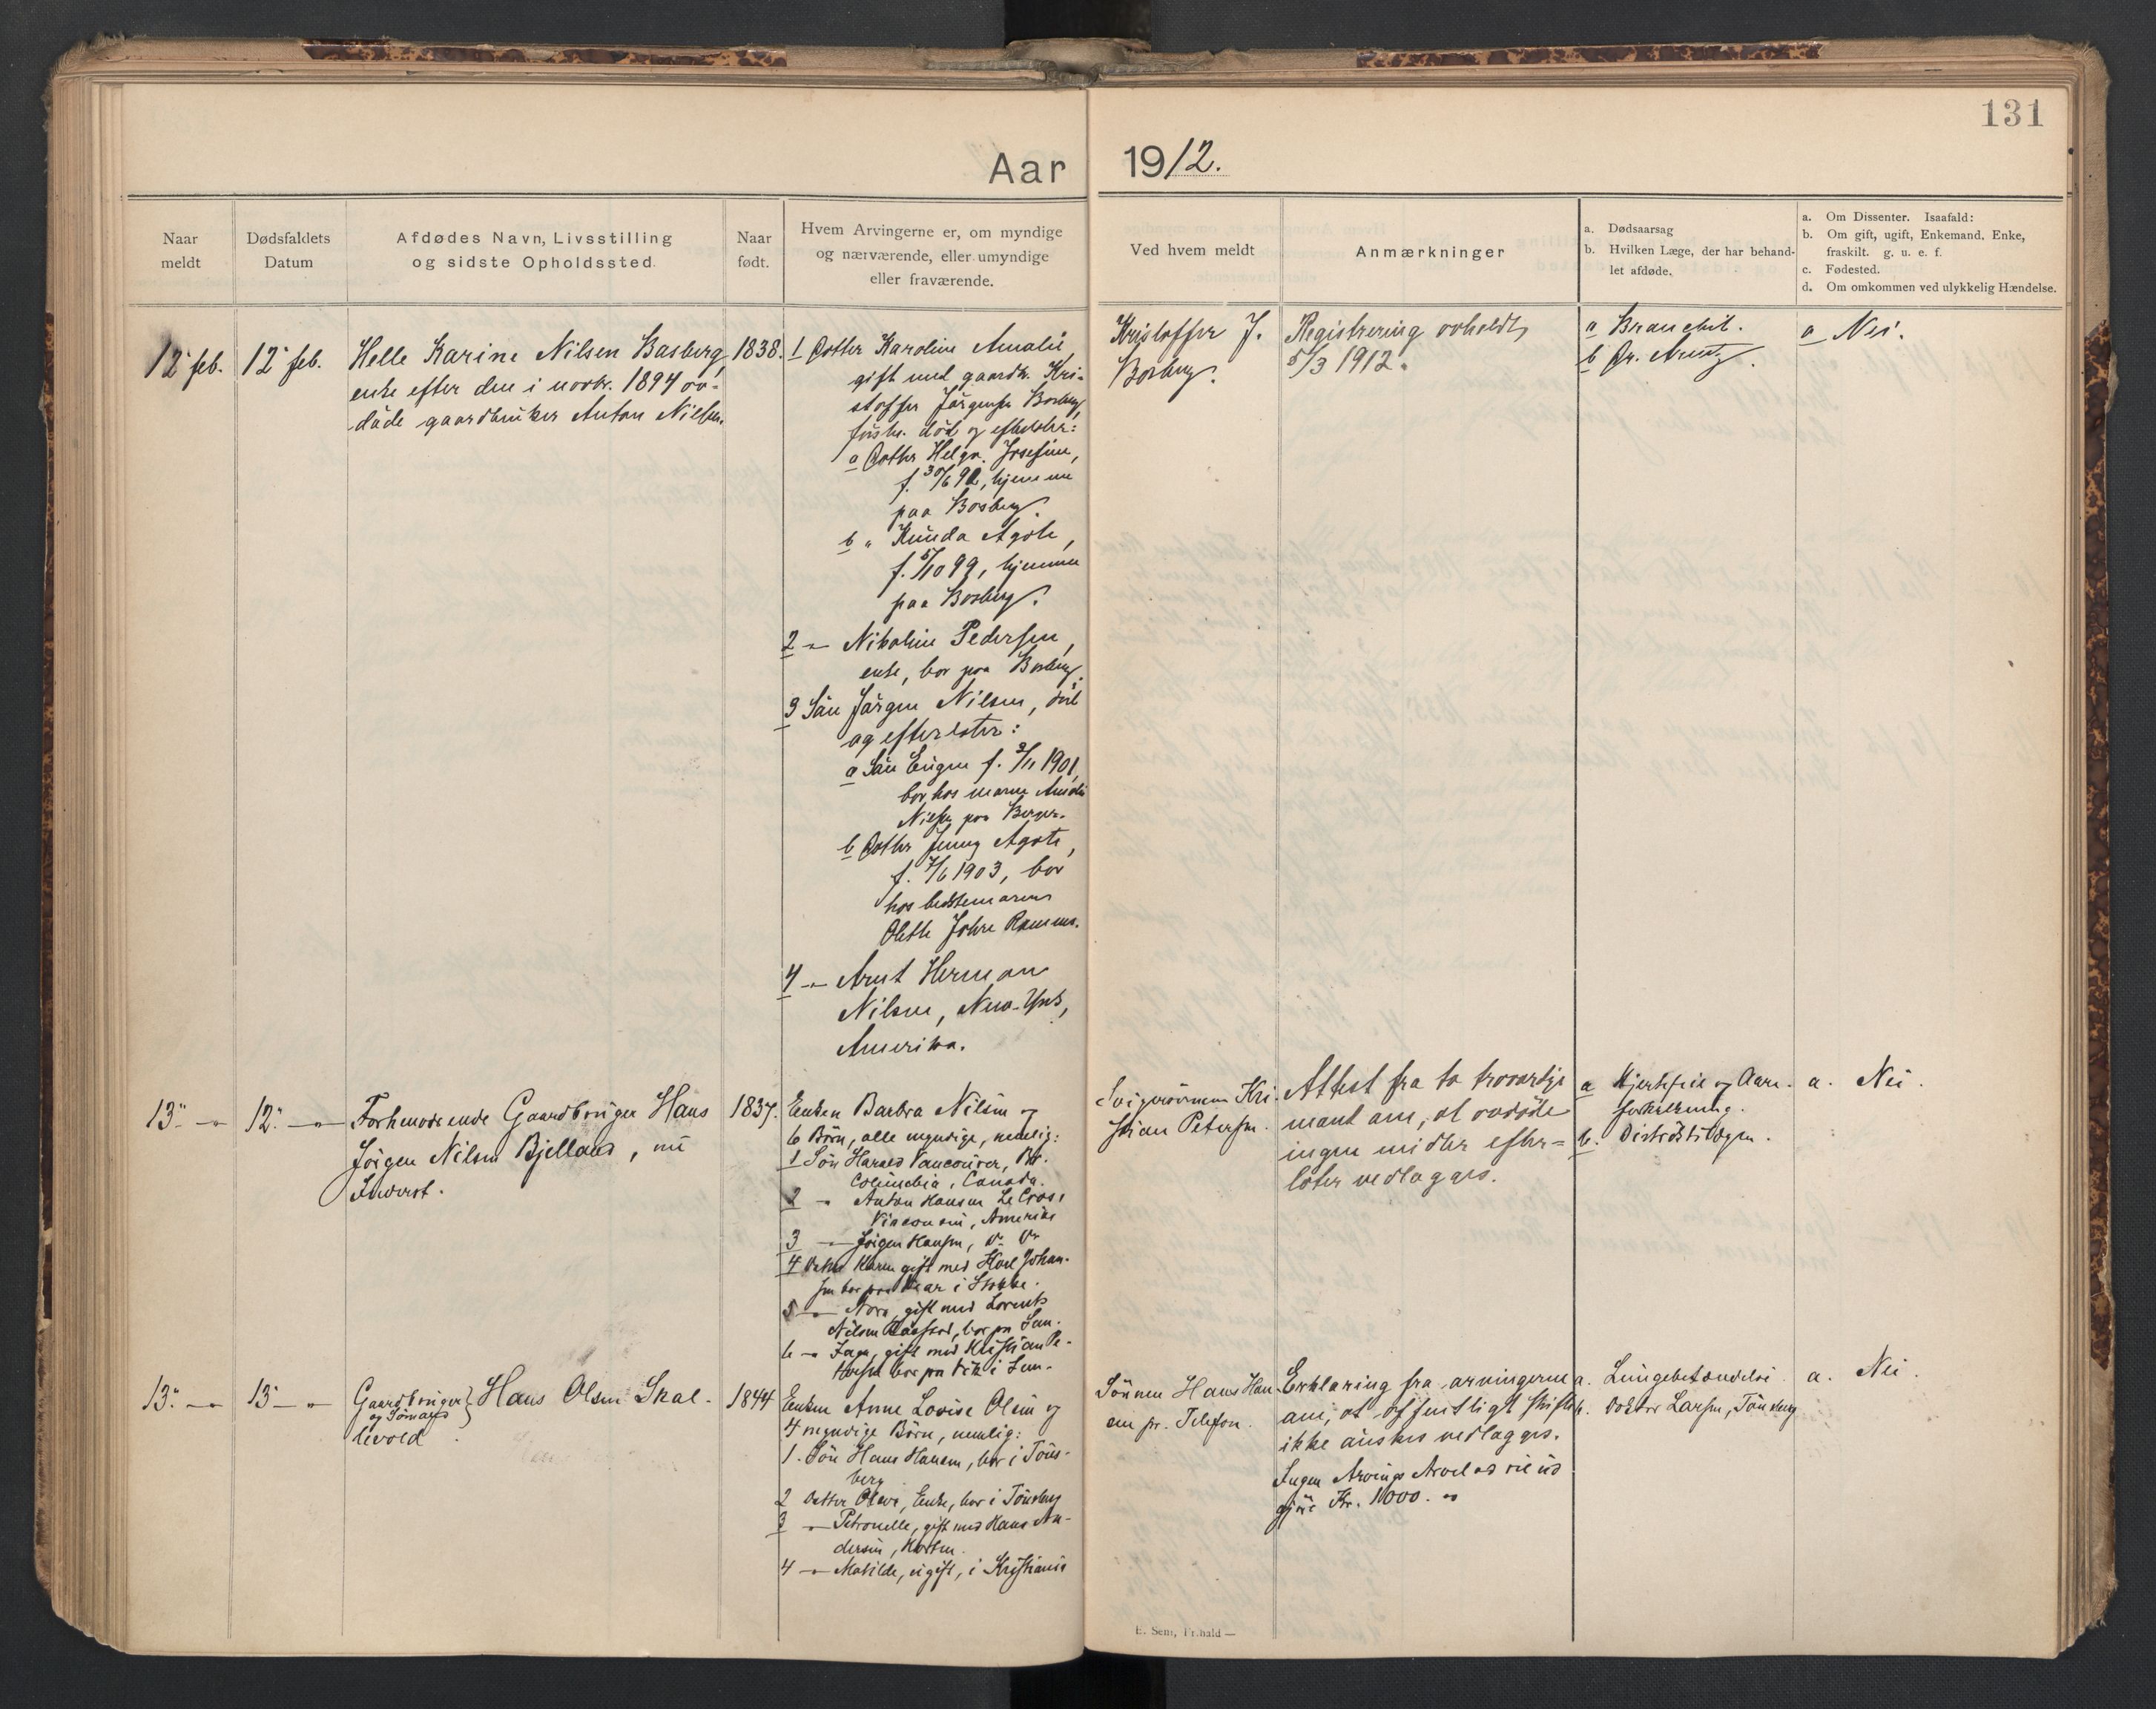 131
Aar 1912.
Naar meldt
Dødsfaldets Datum
Afdødes Navn, Livsstilling og sidste Opholdssted.
Naar født.
Hvem Arvingerne er, om myndige og nærværende, eller umyndige eller fraværende.
Ved hvem meldt
Anmærkninger
a. Dødsaarsag
b. Hvilken Læge, der har behandlet afdøde.
a. Om Dissenter. Isaafald:
b. Om gift, ugift, Enkemand, Enke, fraskilt. g. u. e. f.
c. Fødested.
d. Om omkommen ved ulykkelig Hændelse.
12 feb.
12 feb.
Helle Karine Nilsen Basberg,
enke efter den i novbr. 1894 av-
døde gaardbruker Anton Nilsen.
1838.
1 Datter Karoline Amalie,
gift med gaardbr. Kri-
stoffer Jørgensen Basberg,
død og efterlater:
a Datter Helga Josefine,
hjemme
paa Basberg.
b " Kunda Agate,
f. 5/10 99, hjemme
paa Basberg.
2 -"- Nikoline Pedersen,
enke, bor paa Basberg.
3 Søn Jørgen Nilsen, død
og efterlater:
a Søn Eugen f. 3/11 1901,
bor hos moren
Nilsen paa
b Datter Jenny Agate,
f. 7/6 1903, bor
hos bedstemoren
4 -"- Arnt Herman
Nilsen, New-York,
Amerika.
Kristoffer J.
Basberg.
Registrering avholdt
5/3 1912.
a
b Dr.
a Nei.
13 -"-
12 -"-
Forhenværende Gaardbruger Hans
Jørgen Nilsen Bjelland, nu
Inderst.
1837.
Enken Barbra Nilsen og
6 Børn, alle myndige, nemlig:
1 Søn Harald Vancouver, Br.
Columbia, Canada.
2 -"- Anton Hansen La Cros,
Viaconsin, Amerika
3 -"- Jørgen Hansen,
4 Datter Karen gift med Karl Johan-
sen bor paa i Stokke.
5 -"- Nora, gift med Lorents
Nilsen bor paa Sem.
6 -"- gift med Kristian Pe-
tersen bor paa i Sem.
Svigersønnen Kri-
stian Petersen.
Attest fra to troværdige
mænd om, at avdøde
ingen midler efter-
later vedlagges.
a Hjertefeil og Aare-
forkalkning.
b. Distriktslægen.
a. Nei.
13 -"-
13 -"-
Gaardbruger
og Sømand
Hans Olsen Skal-
levold
1844
Enken Anne Lovise Olsen og
4 myndige Børn, nemlig:
1. Søn Hans Hansen, bor i Tøns-
berg
2 Datter Oleva, Enke, bor i Tønsberg
3 -"- Petronelle, gift med Hans An-
dersen, Horten.
4 -"- Matilde, ugift, i Kristiania
Sønnen Hans Han-
sen pr. Telefon.
Erklæring fra arvingerne
om, at offentligt skifte
ikke ønskes vedlagges.
Ingen Arvings Arvelod vil ud-
gjøre Kr. 1000.
a. Lungebetændelse.
b. Doktor Larsen, Tønsberg
a. Nei.
E. Sem, Fr.hald —